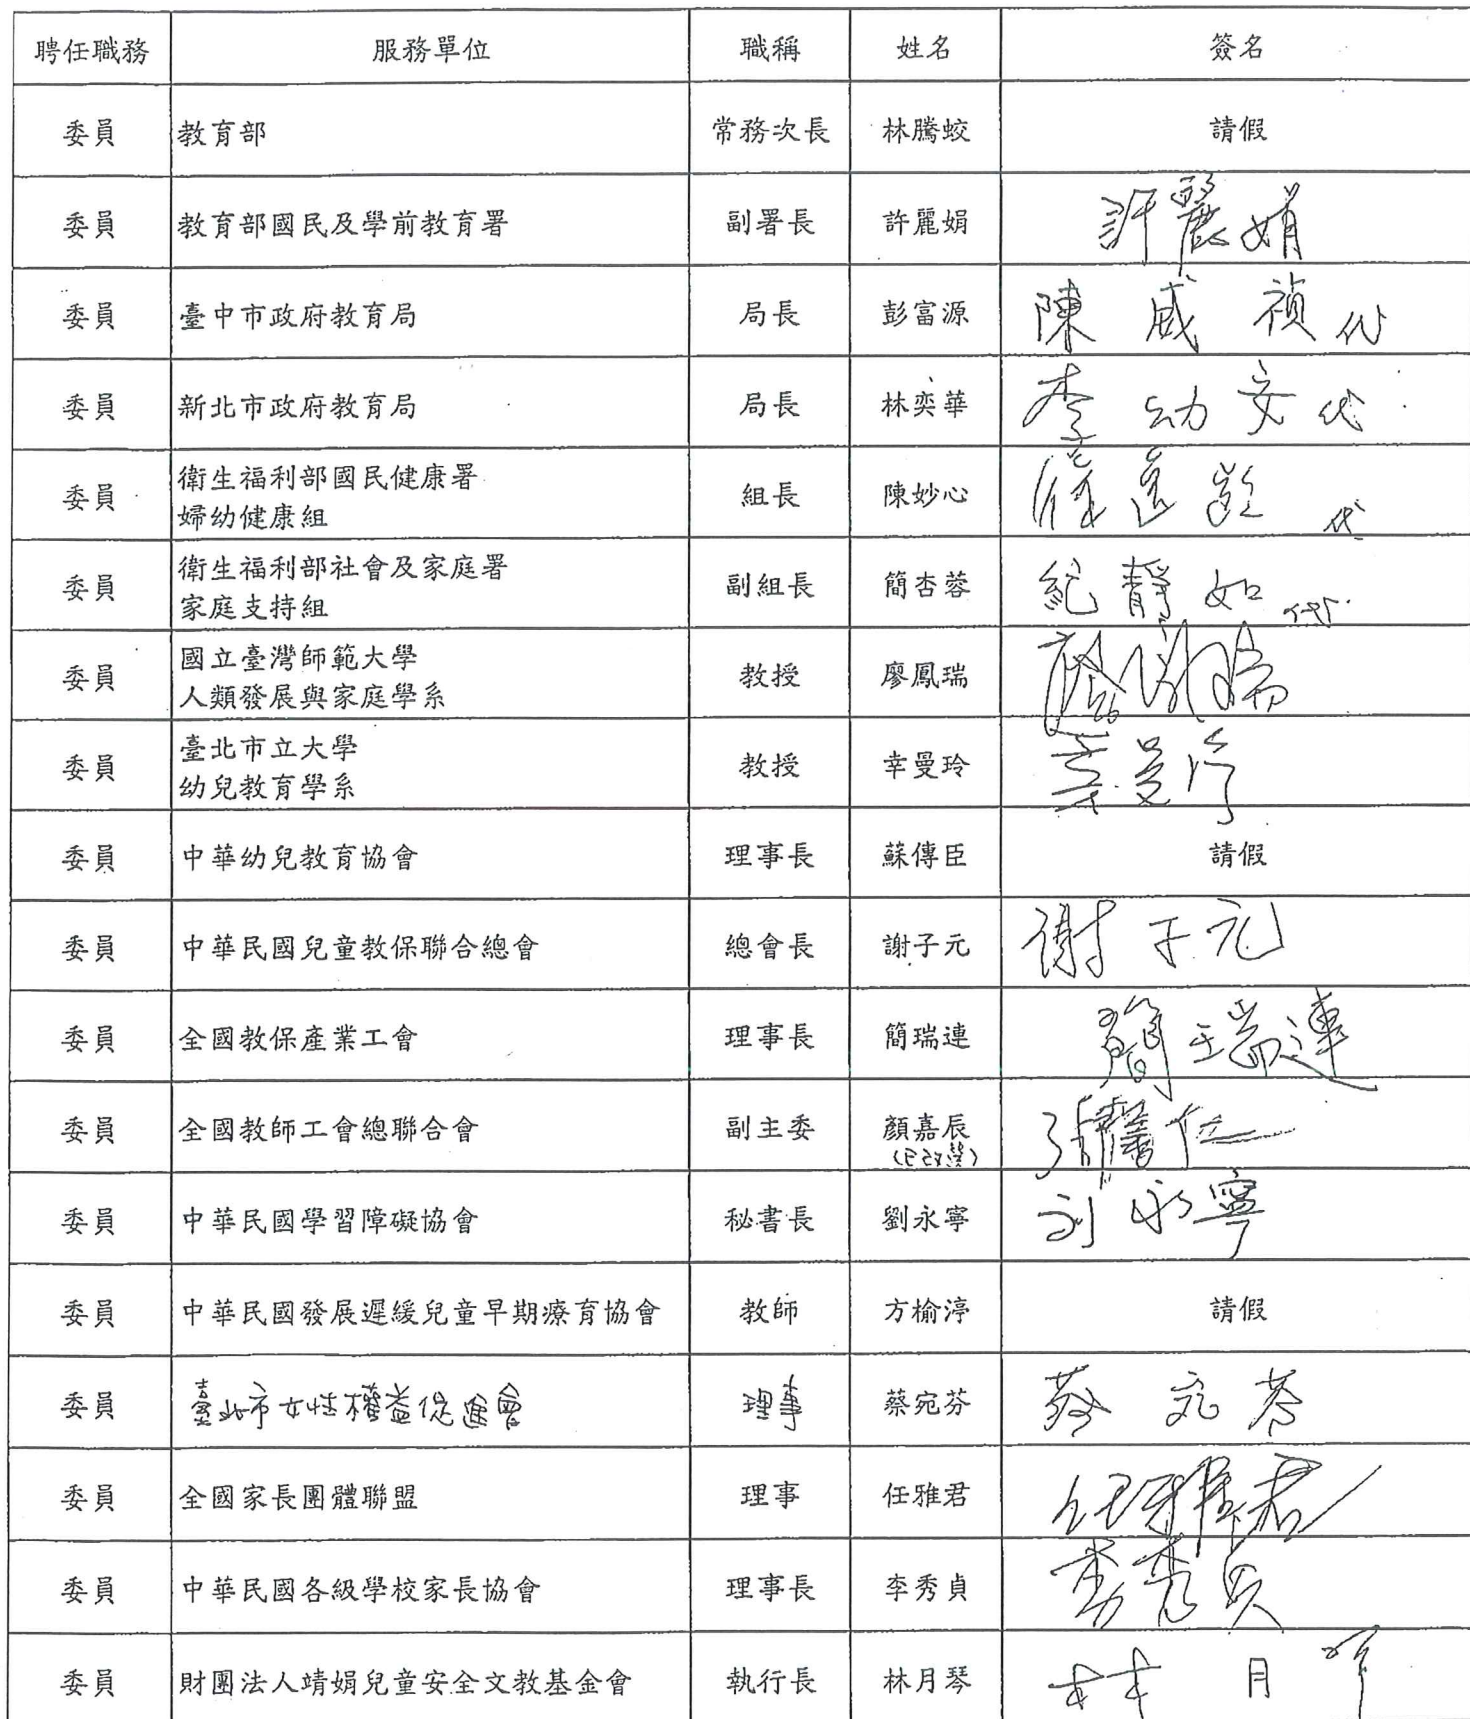 聘任職務 服務單位 職稱 姓名 簽名
委員 教育部 常務次長 林騰蛟 請假
委員 教育部國民及學前教育署 副署長 許麗娟 許麗娟
委員 臺中市政府教育局 局長 彭富源 陳威禎代
委員 新北市政府教育局 局長 林奕華 李幼安代
委員 衛生福利部國民健康署
婦幼健康組 組長 陳妙心 代
委員 衛生福利部社會及家庭署
家庭支持組 副組長 簡杏蓉 紀靜如代
委員 國立臺灣師範大學
人類發展與家庭學系 教授 廖鳳瑞 廖鳳瑞
委員 臺北市立大學
幼兒教育學系 教授 幸曼玲 幸曼玲
委員 中華幼兒教育協會 理事長 蘇傳臣 請假
委員 中華民國兒童教保聯合總會 總會長 謝子元 謝子元
委員 全國教保產業工會 理事長 簡瑞連 簡瑞連
委員 全國教師工會總聯合會 副主委 顏嘉辰
委員 中華民國學習障礙協會 秘書長 劉永寧 刘永寧
委員 中華民國發展遲緩兒童早期療育協會 教師 方榆渟 請假
委員 臺北市女性權益促進會 理事 蔡宛芬 蔡宛芬
委員 全國家長團體聯盟 理事 任雅君 任雅君
委員 中華民國各級學校家長協會 理事長 李秀貞 李秀貞
委員 財團法人靖娟兒童安全文教基金會 執行長 林月琴 林月琴